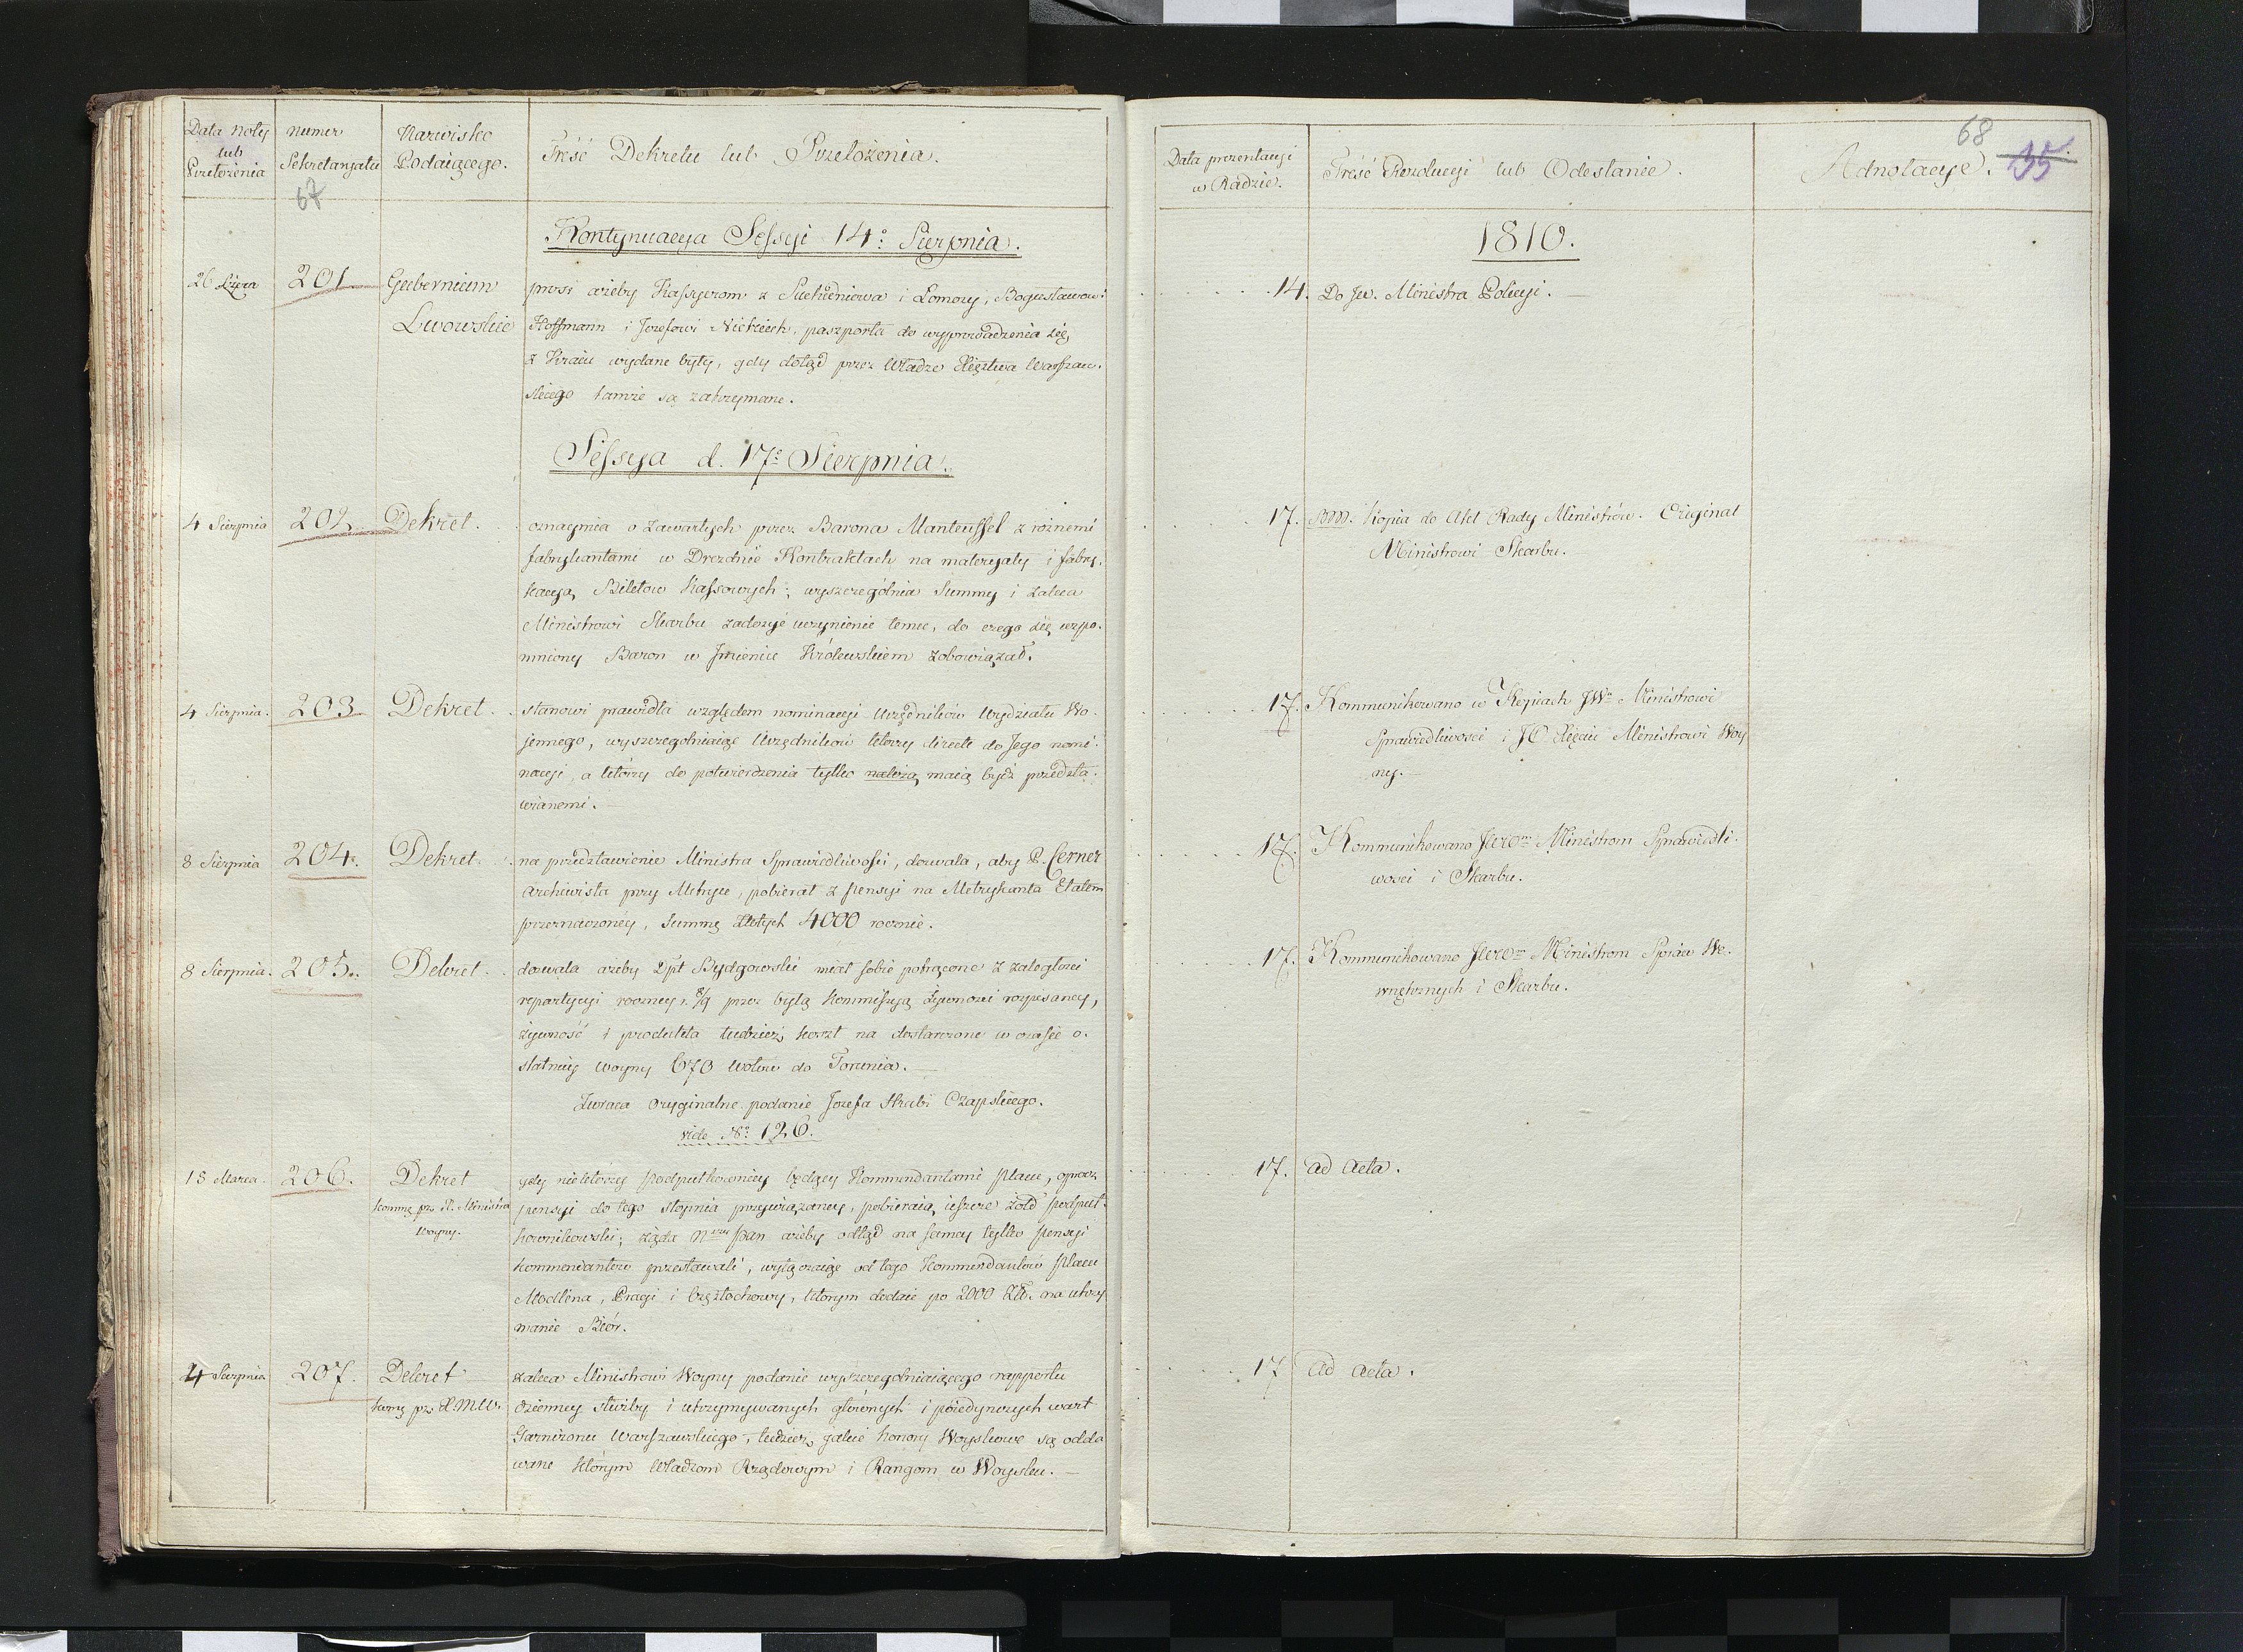 Data Noty
lub
Przełożenia
Numer
Sekretaryatu
67
Nazwisko
Podaiącego.
Treść Dekretu lub Przełożenia.
Kontynuacya Sessyi 14º Sierpnia.
26 Lipca
201.
Gubernium
Lwowskie
prosi ażeby Kassyerom z Suchedniowa i Łomowy, Bogusławowi
Hoffmann i Jozefowi paszporta do wyprowadzenia się
z Kraiu wydane były, gdy dotąd przez Władze Xięztwa Warszaw-
skiego tamże są zatrzymane.
Sessya d. 17º Sierpnia.
4 Sierpnia
202.
Dekret.
oznaymia o zawartych przez Barona Manteuffel z rożnemi
fabrykantami w Dreznie Kontraktach na materyały i fabry-
kacyą Biletow Kassowych; wyszczególnia Summy i zaleca
Ministrowi Skarbu zadosyć uczynienie temu, do czego się wspo-
mniony Baron w Jmieniu Królewskiem zobowiązał.
4 Sierpnia.
203
Dekret.
stanowi prawidła względem nominacyi Urzędników Wydziału Wo-
jennego, wyszczegolniaiąc Urzędników którzy directe do Jego nomi-
nacyi, a którzy do potwierdzenia tylko należą maią bydź przedsta-
wianemi.
8 Sierpnia
204.
Dekret.
na przedstawienie Ministra Sprawiedliwości, dozwala, aby P. Lerner
Archiwista przy Metryce, pobierał z pensyi na Metrykanta Etatem
przeznaczoney, Summę złotych 4000 rocznie.
8 Sierpnia.
205.
Dekret.
dozwala ażeby Dpt Bydgowski miał sobie potrącone z zaległości
repartycyi roczney r. 8/9 przez byłą Kommissyą Żywności rozpisaney,
żywność i produkta tudzież koszt na dostarczone w czasie o-
statniey woyny 670 wołów do Torunia.
Zwraca oryginalne podanie Jozefa Hrabi Czapskiego.
vide Nº 126.
18 Marca.
206.
Dekret
komuę prz. X. Ministra
Woyny.
gdy niektórzy Podpułkownicy będący Kommendantami placu, oprócz
pensyi do tego stopnia przywiązaney, pobieraią ieszcze żołd podpuł-
kownikowski; żąda Nayiaś. Pan ażeby odtąd na samey tylko pensyi
Kommendantów przestawali, wyłączaiąc od tego Kommendantów placu
Modlina, Pragi i Częstochowy, którym dodaie po 2000 Złt. na utrzy
manie Biór.
4 Sierpnia
207.
Dekret
komuę prz. X. M. W.
zaleca Ministrowi Woyny podanie wyszczegolniaiącego rapportu
dzienney służby i utrzymywanych głównych i poiedynczych wart
Garnizonu Warszawskiego, tudzież jakie honory Woyskowe są odda
wane którym Władzom Rządowym i Rangom w Woysku.
Data prezentacyi
w Radzie.
Treść Rezolucyi lub Odesłanie.
Adnotacye.
68
35
1810.
14. Do Jw. Ministra Policyi.
17. Kopia do Akt Rady Ministrów. Oryginał
Ministrowi Skarbu.
17. Kommunikowano w Kopiach JWu Ministrowi
Sprawiedliwości i JO Xięciu Ministrowi Woy
ny.
17. Kommunikowano JWom Ministrom Sprawiedli-
wości i Skarbu.
17. Kommunikowano JWom Ministrom Spraw We-
wnętrznych i Skarbu.
17. ad Acta.
17 ad Acta.